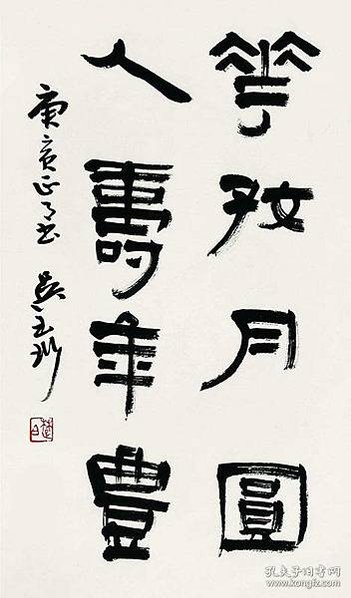 華好月圓
人壽年豐
庚寅正月书 吴玉
孔夫子旧书网
www.kongfz.com